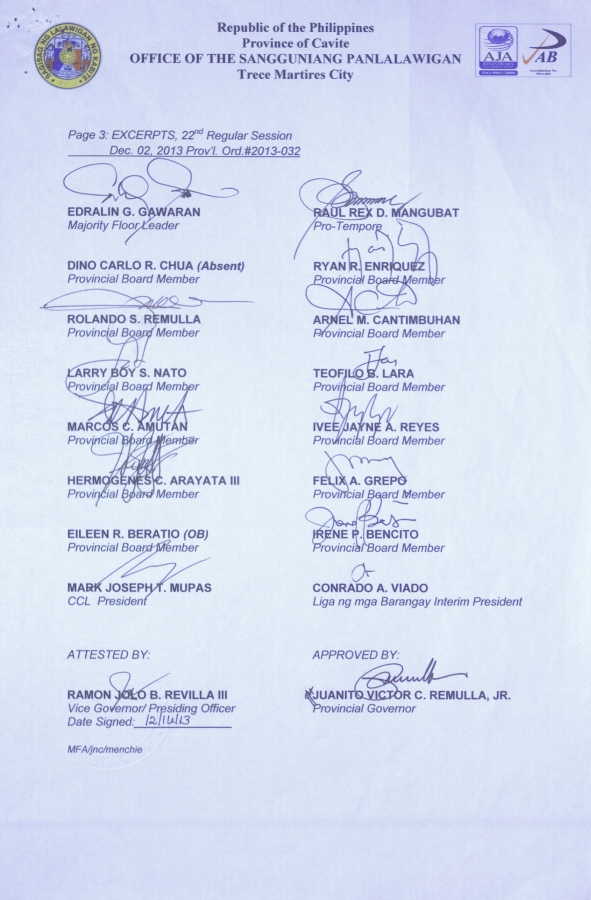 Republic of the Philippines
Province of Cavite
OFFICE OF THE SANGGUNIANG PANLALAWIGAN
Trece Martires City
AJA
AB
Page 3: EXCERPTS, 22nd Regular Session
Dec. 02, 2013 Prov'l. Ord.#2013-032
EDRALIN G. GAWARAN
Majority Floor Leader
RAUL REX D. MANGUBAT
Pro-Tempore
DINO CARLO R. CHUA (Absent)
Provincial Board Member
RYAN R. ENRIQUEZ
Provincial Board Member
ROLANDO S. REMULLA
Provincial Board Member
ARNEL M. CANTIMBUHAN
Provincial Board Member
LARRY BOY S. NATO
Provincial Board Member
TEOFILO B. LARA
Provincial Board Member
MARCOS C. AMUTAN
Provincial Board Member
IVEE JAYNE A. REYES
Provincial Board Member
HERMOGENES C. ARAYATA III
Provincial Board Member
FELIX A. GREPO
Provincial Board Member
EILEEN R. BERATIO (OB)
Provincial Board Member
IRENE P. BENCITO
Provincial Board Member
MARK JOSEPH T. MUPAS
CCL President
CONRADO A. VIADO
Liga ng mga Barangay Interim President
ATTESTED BY:
APPROVED BY:
RAMON JOLO B. REVILLA III
Vice Governor/ Presiding Officer
Date Signed:
JUANITO VICTOR C. REMULLA, JR.
Provincial Governor
MFA/jnc/menchie